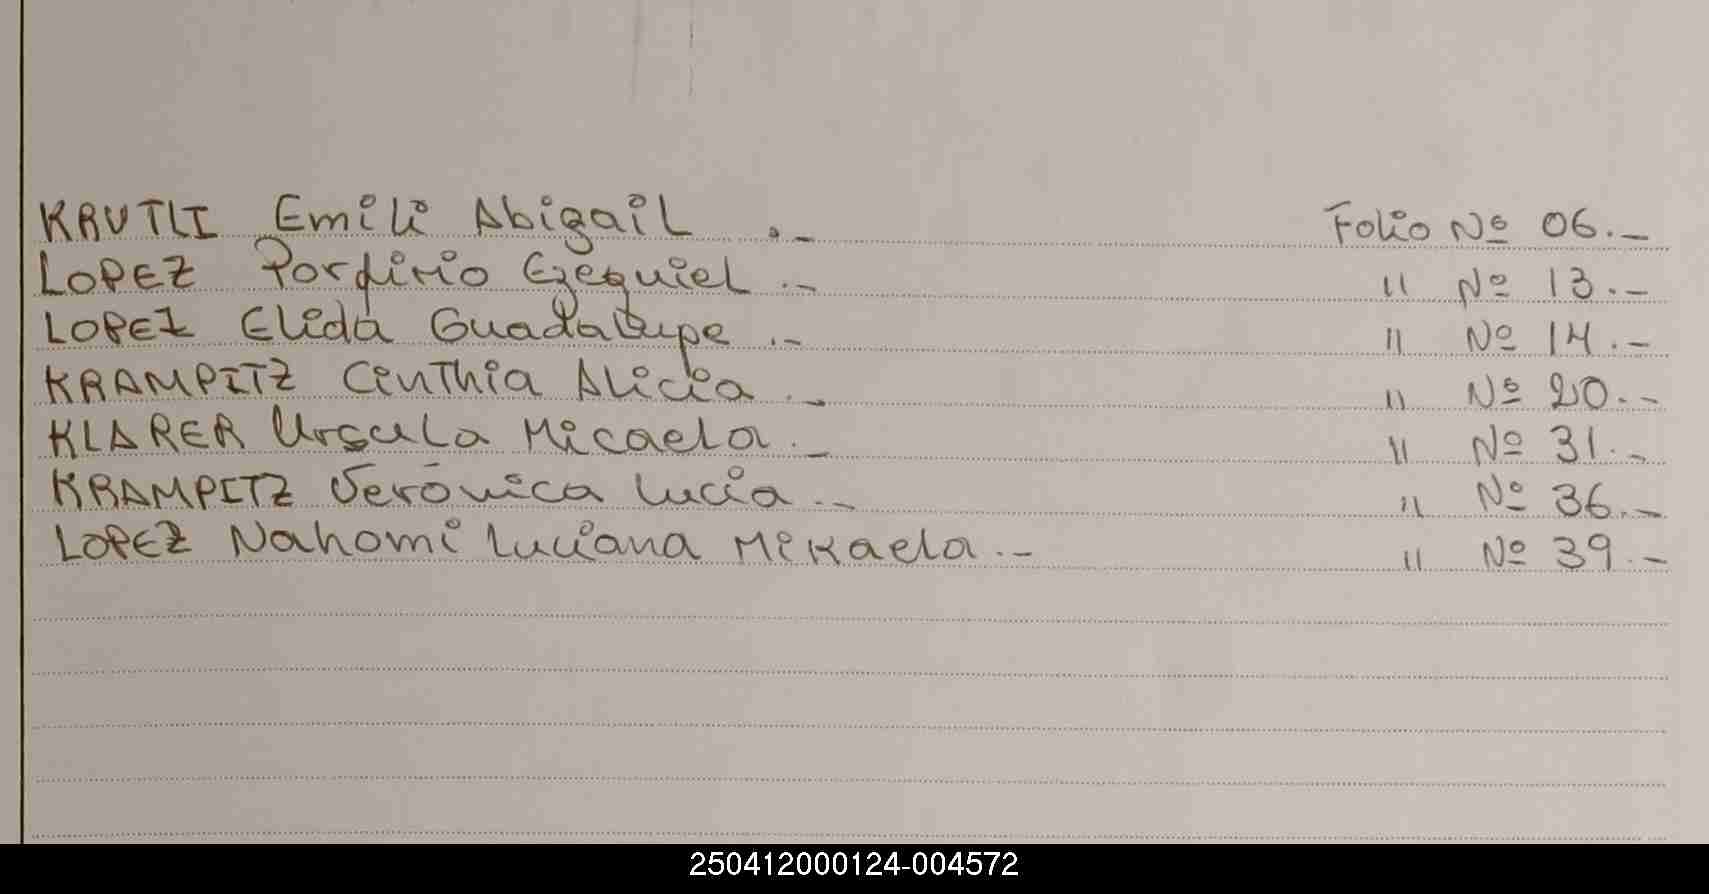 KRUTLI Emili Abigail .- Folio Nº 06.-
LOPEZ Porfirio Ezequiel .- " Nº 13.-
LOPEZ Elida Guadalupe .- " Nº 14.-
KRAMPITZ Cinthia Alicia .- " Nº 20.-
KLARER Ursula Micaela .- " Nº 31.-
KRAMPITZ Verónica Lucia .- " Nº 36.-
LOPEZ Nahomi Luciana Mikaela .- " Nº 39.-
250412000124-004572